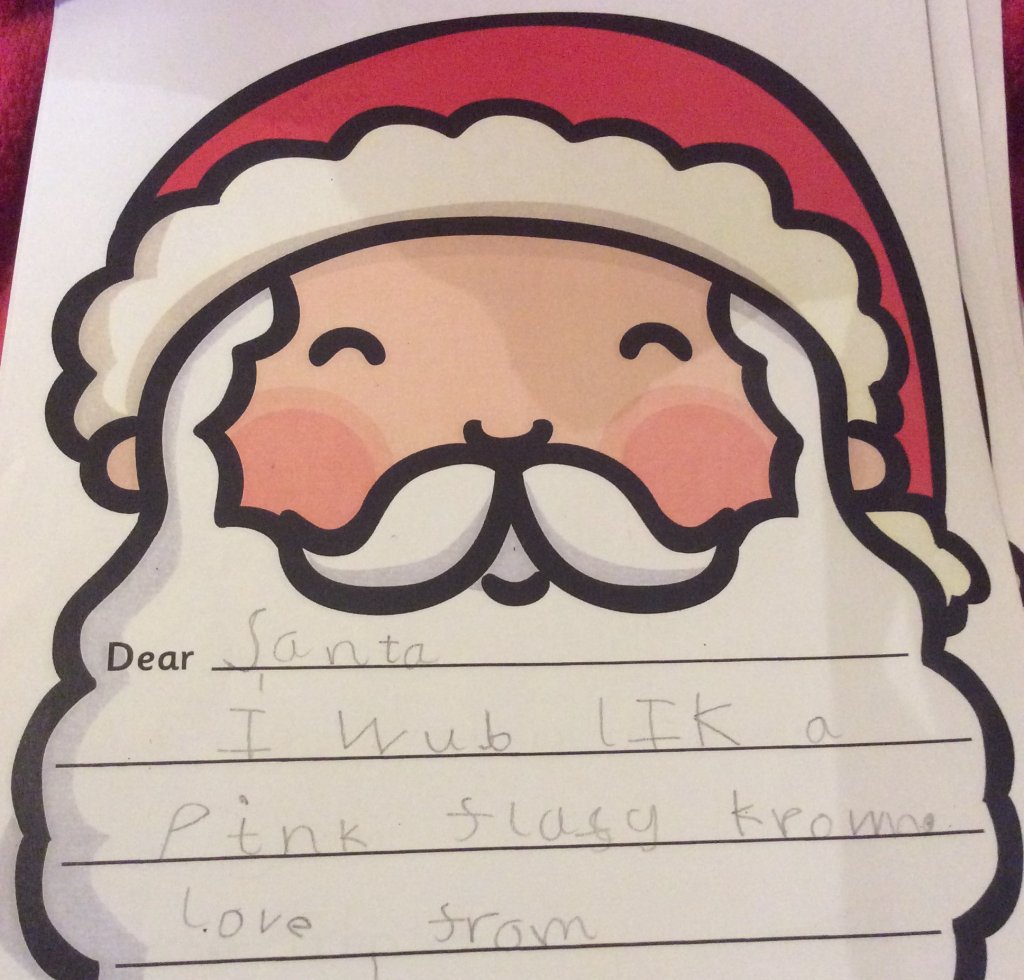 Dear Santa
I Wub lIK a
Pink flafy krown.
love from